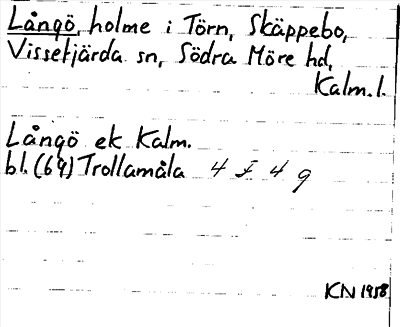 Långö, holme i Törn, Skäppebo,
Vissefjärda sn, Södra Möre hd,
Kalm. l.
Långö ek Kalm.
bl. (64) Trollamåla 4 F 4 g
KN 1958